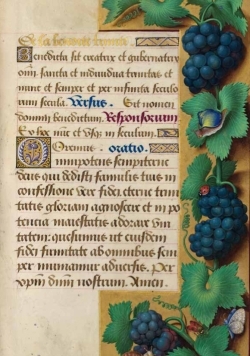 De la benoiste trinite
Benedicta sit creatrix et gubernatrix
omĩ. sancta et individua trinitas et
nunc et semper et per infinita seculo
rum secula. Versus. Sit nomen
domini benedictum. Responsorium
Ex hoc nũc et vsq3 in seculum.
Oremus. oratio.
Omnipotens sempiterne
deus qui dedisti famulis tuis in
confessione vere fidei. eterne trini
tatis gloriam agnoscere et in po
tencia maiestatis adorare vni
tatem: quesumus vt eiusdem
fidei firmitate ab omnibus sem
per muniamur aduersis. Per
xp̃m dñm nostrum. Amen.